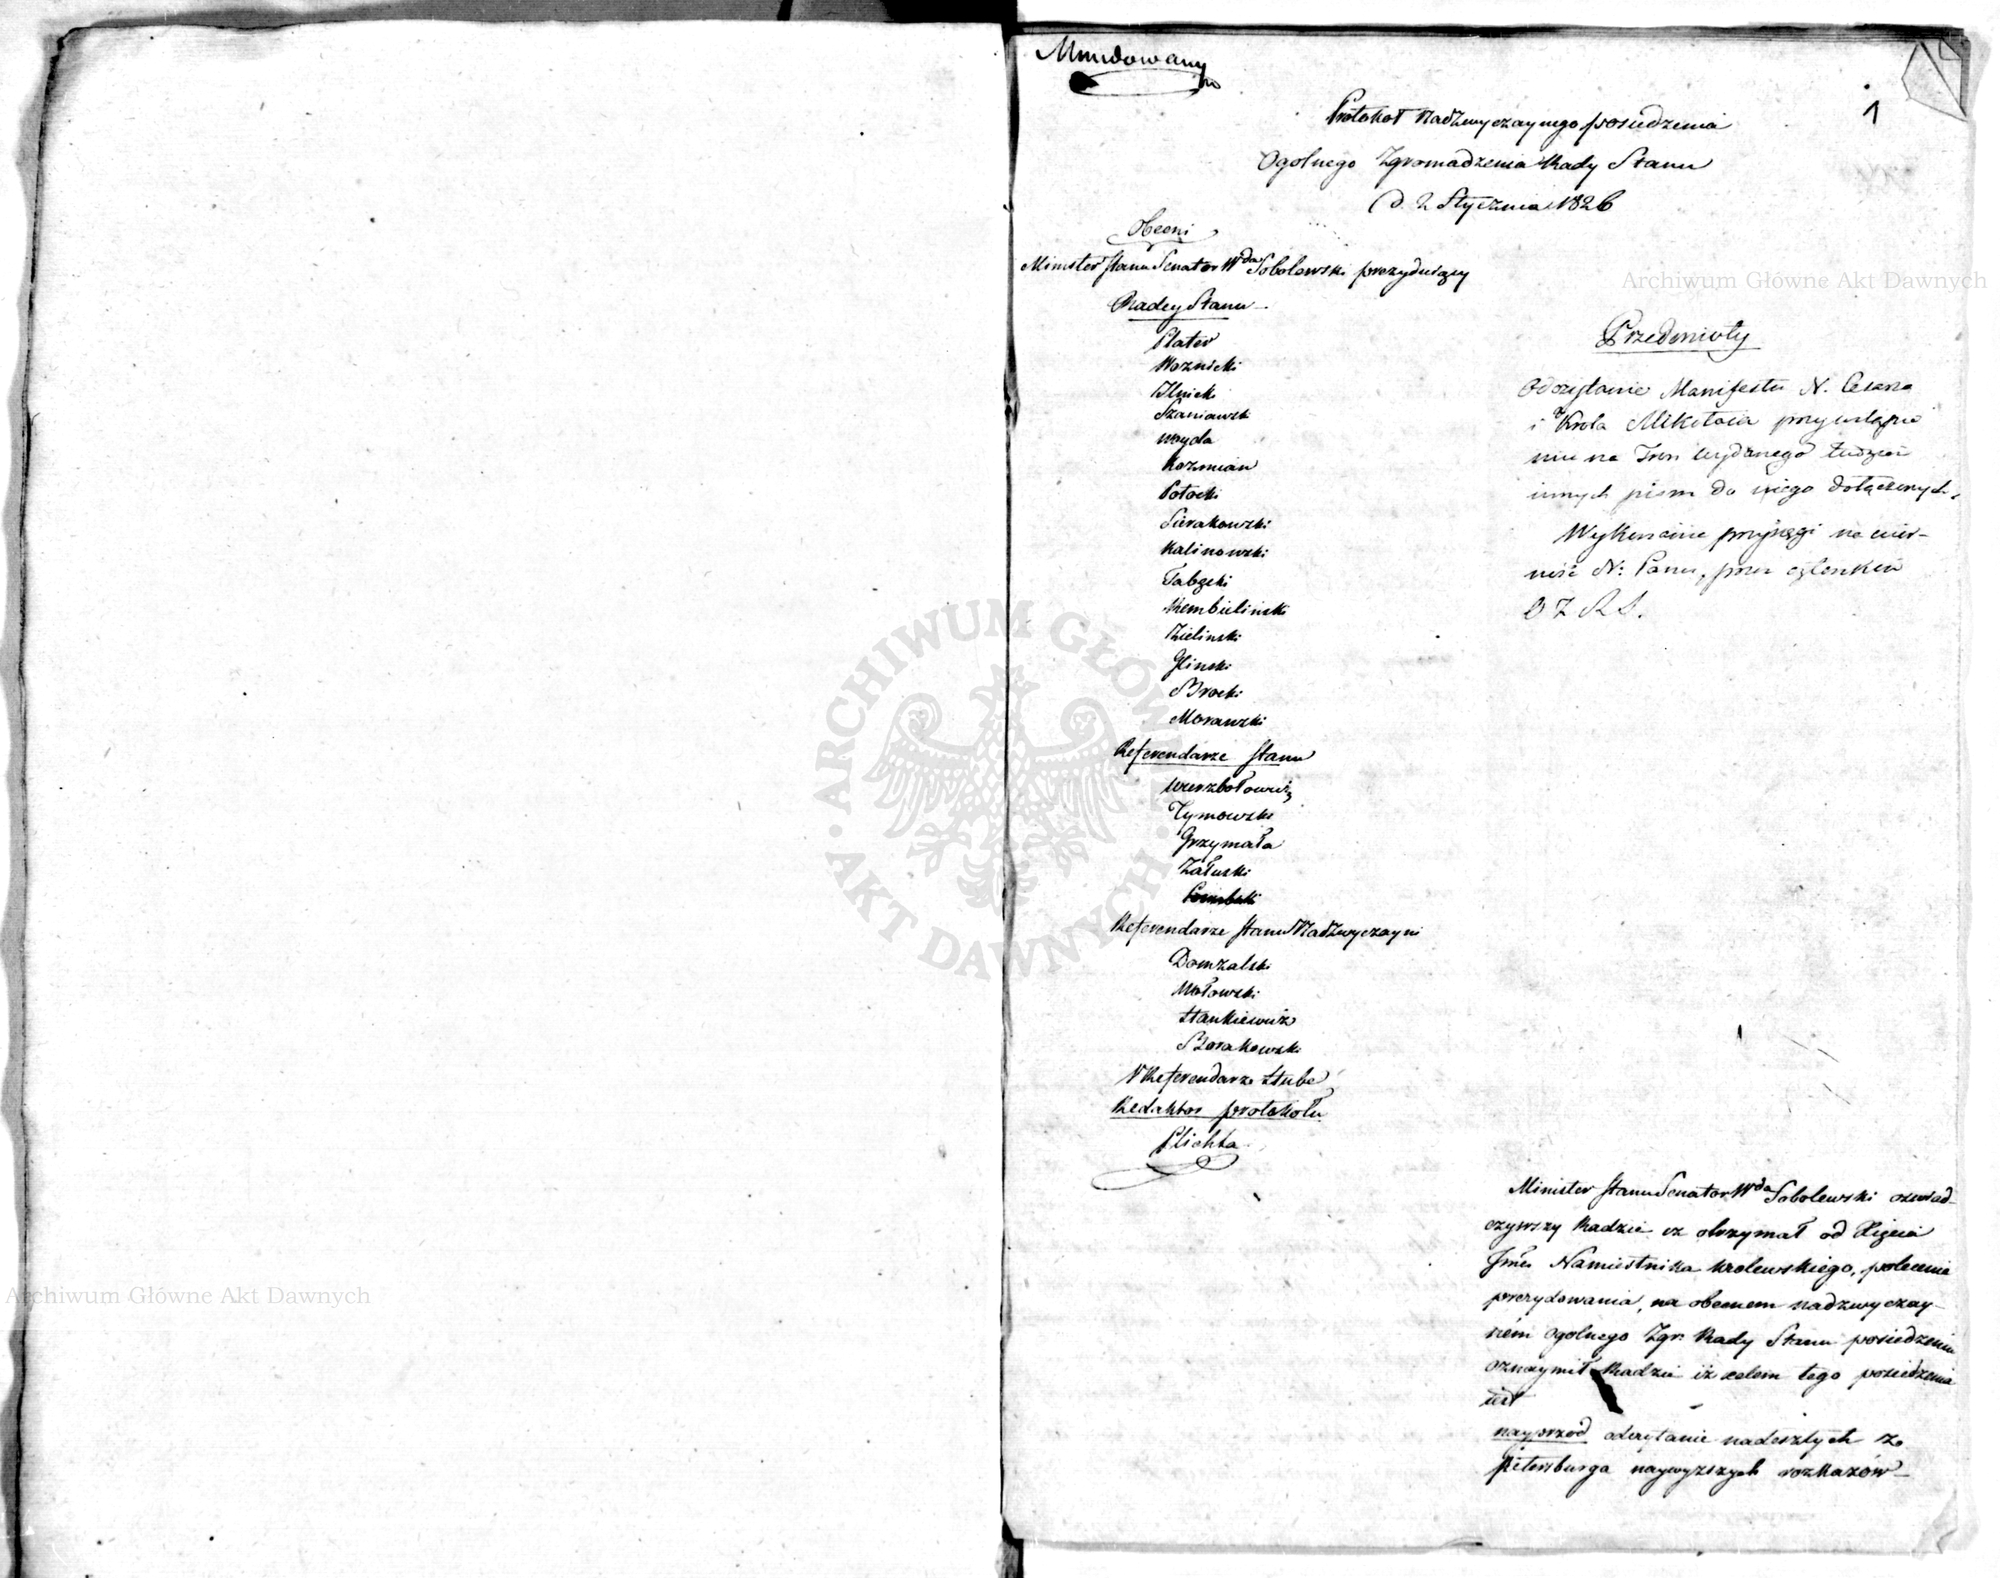 Mundowany
1
Protokoł Nadzwyczaynego posiedzenia
Ogolnego Zgromadzenia Rady Stanu
d. 2 Stycznia 1826
Obecni
Minister Stanu Senator Wda Sobolewski prezyduiący
Radcy Stanu
Plater
Woznicki
Ilnicki
Szaniawski
Woyda
Kozmian
Potocki
Sierakowski
Kalinowski
Łabęcki
Rembieliński
Zielinski
Glinski
Brocki
Morawski
Referendarze Stanu
Wierzbołowicz
Tymowski
Grzymała
Załuski
Referendarze Stanu Nadzwyczayni
Domzalski
Wołowski
Stankiewicz
Borakowski
V Referendarz Stube
Redaktor protokołu
Plichta
Przedmioty
Odczytanie Manifestu N. Cesarza
i Krola Mikołaia przy wstąpie
niu na Tron wydanego tudzież
innych pism do niego dołączonych.
Wykonanie przysięgi na wier-
ność N: Panu, przez członków
O Z R S.
Minister Stanu Senator Wda Sobolewski oswiad-
czywszy Radzie iz otrzymał od Xięcia
Jmći Namiestnika Krolewskiego, polecenie
prezydowania, na obecnem nadzwyczay-
nem ogolnego Zgr. Rady Stanu posiedzeniu
oznaymił Radzie iż celem tego posiedzenia
iest
nayprzod odczytanie nadeszłych z
Petersburga naywyzszych rozkazów
Archiwum Główne Akt Dawnych
Archiwum Główne Akt Dawnych
ARCHIWUM GŁÓWNE AKT DAWNYCH